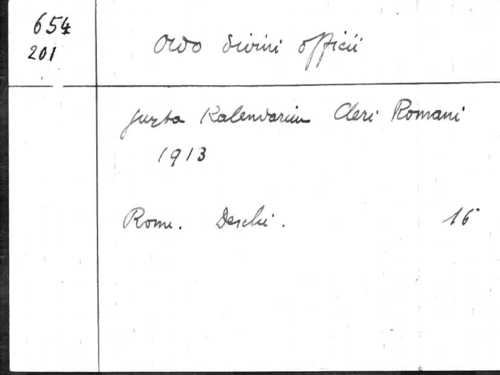 654
201
Ordo divini officii
juxta Kalendarium Cleri Romani
1913
Rome. Desclée.
16